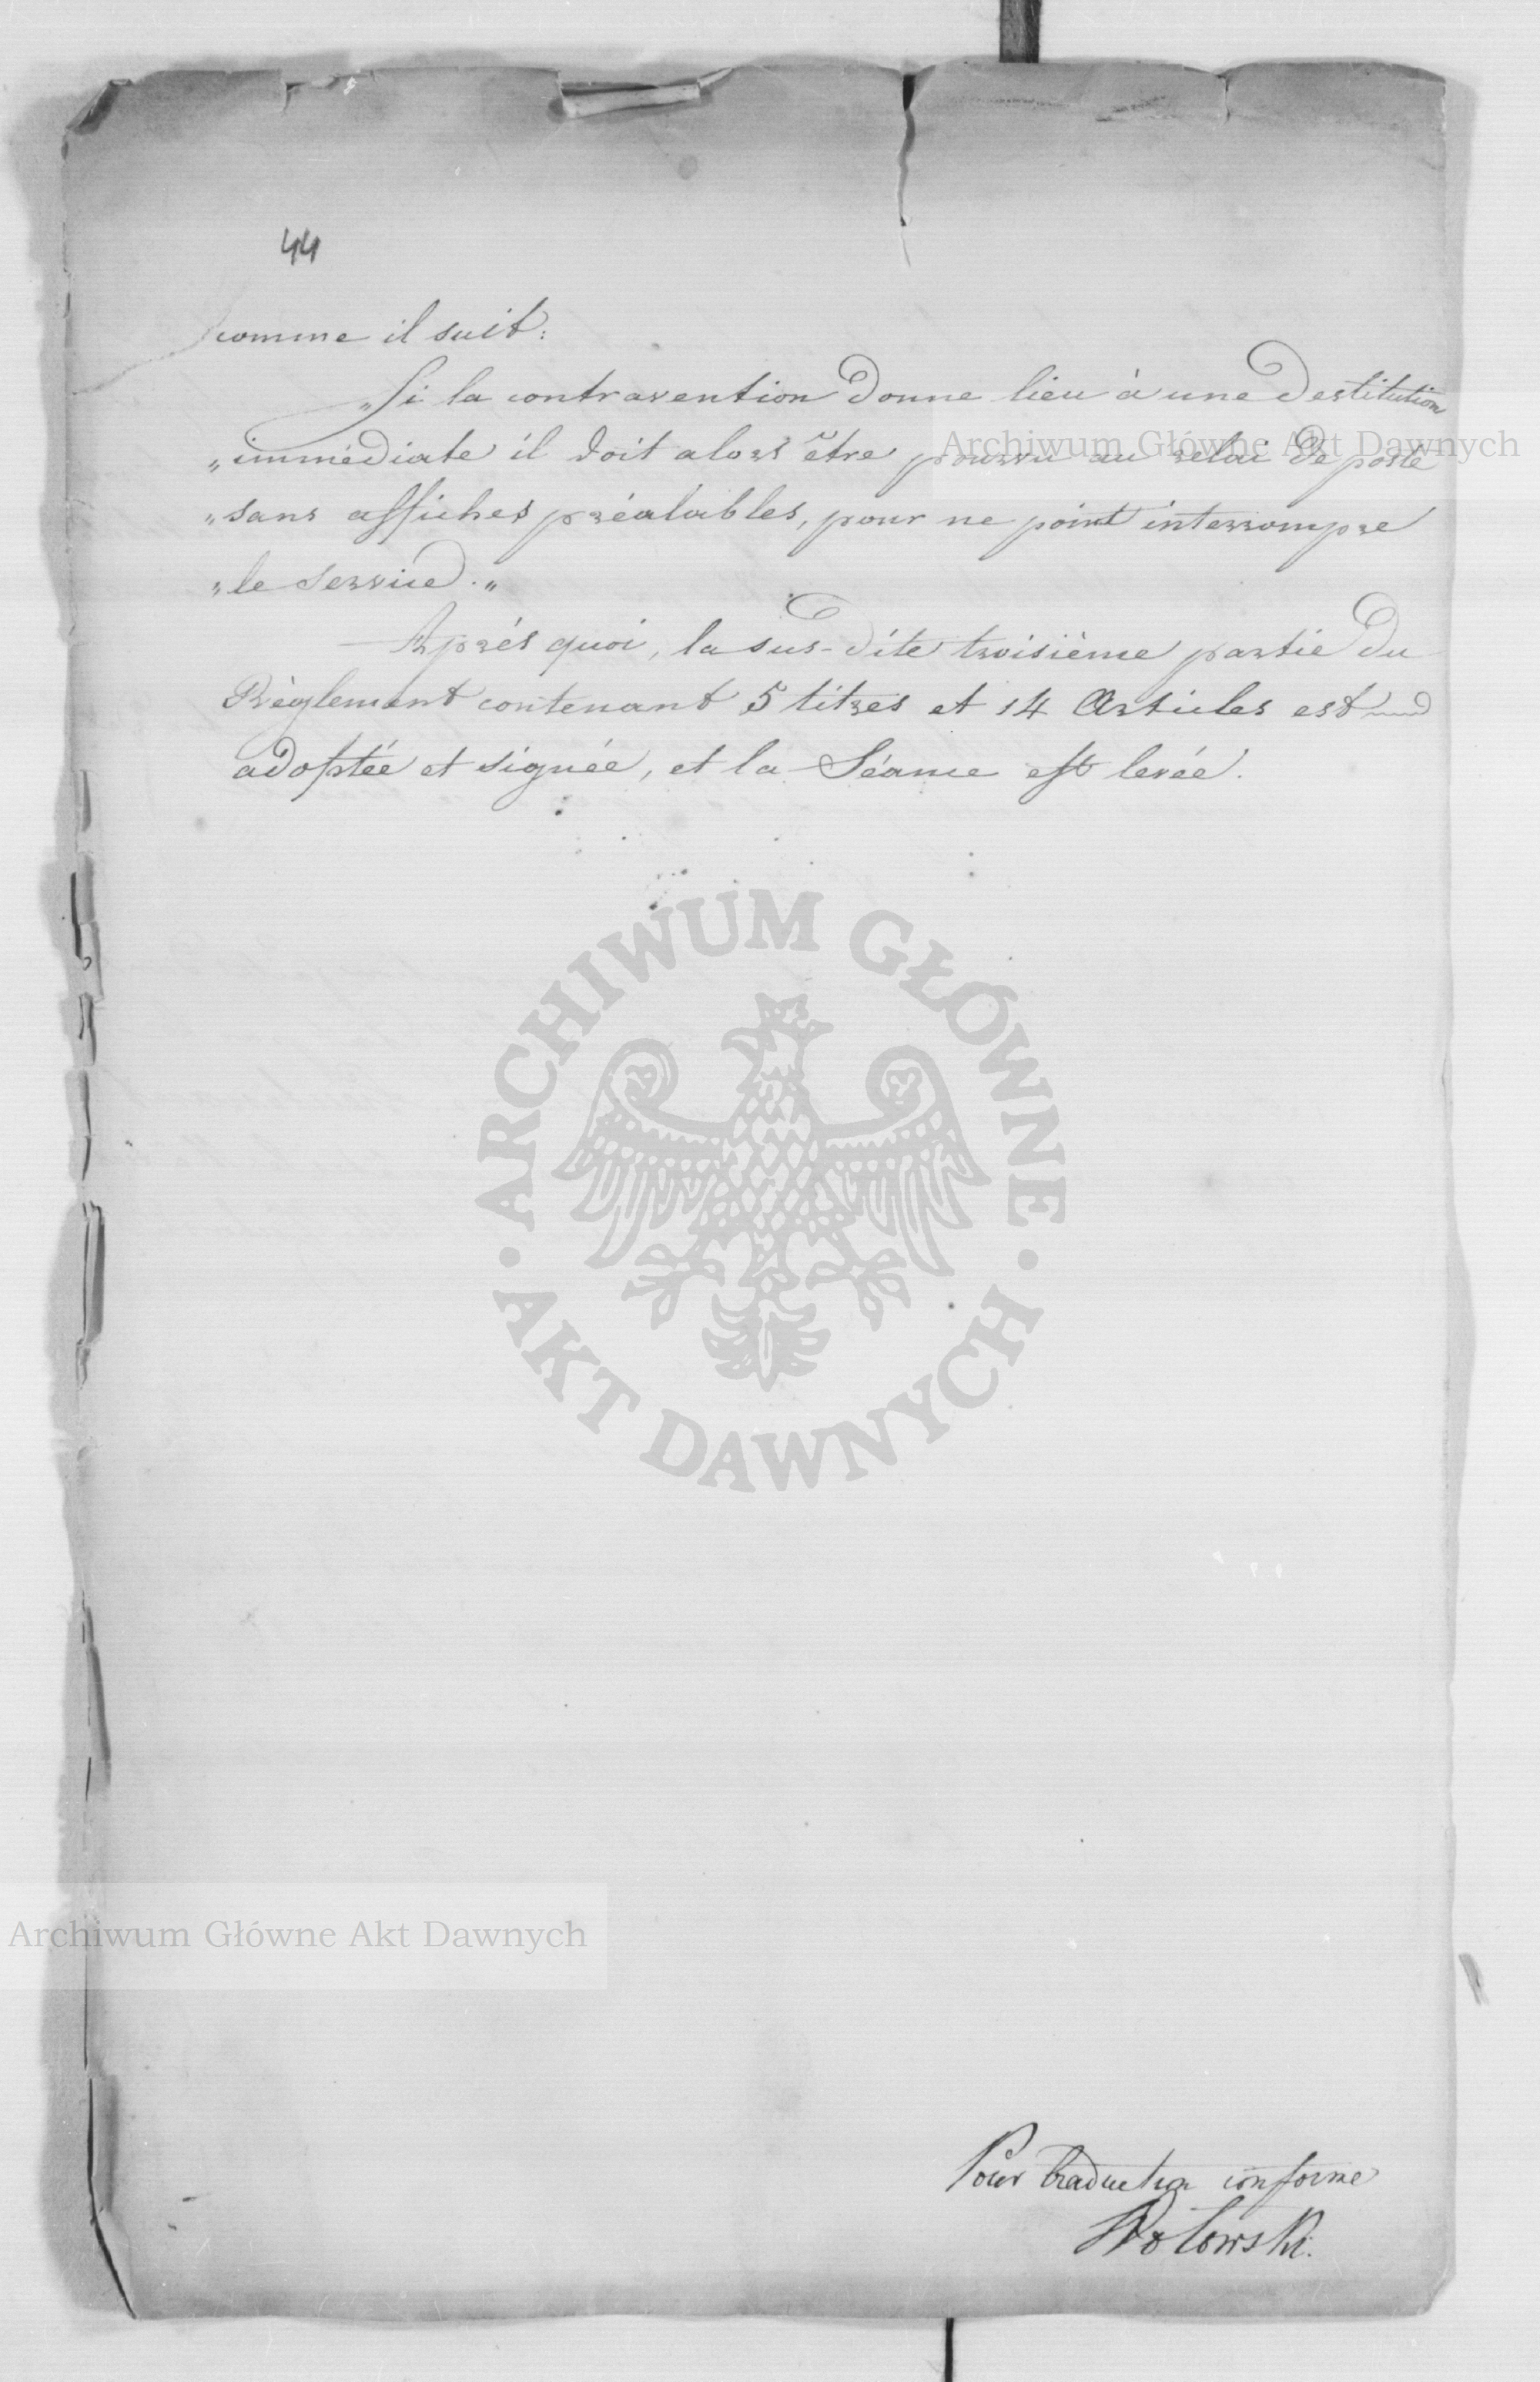 44
comme il suit:
„Si la contravention donne lieu à une destitution
„immédiate il doit alors être pourvu au relai de poste
„sans affiches préalables, pour ne point interrompre
„le service.„
Après quoi, la sus-dite troisième partie du
Règlement contenant 5 titres et 14 Articles est
adoptée et signée, et la Séance est levée.
ARCHIWUM GŁÓWNE
AKT DAWNYCH
Archiwum Główne Akt Dawnych
Archiwum Główne Akt Dawnych
Pour traduction conforme
Wolowski.